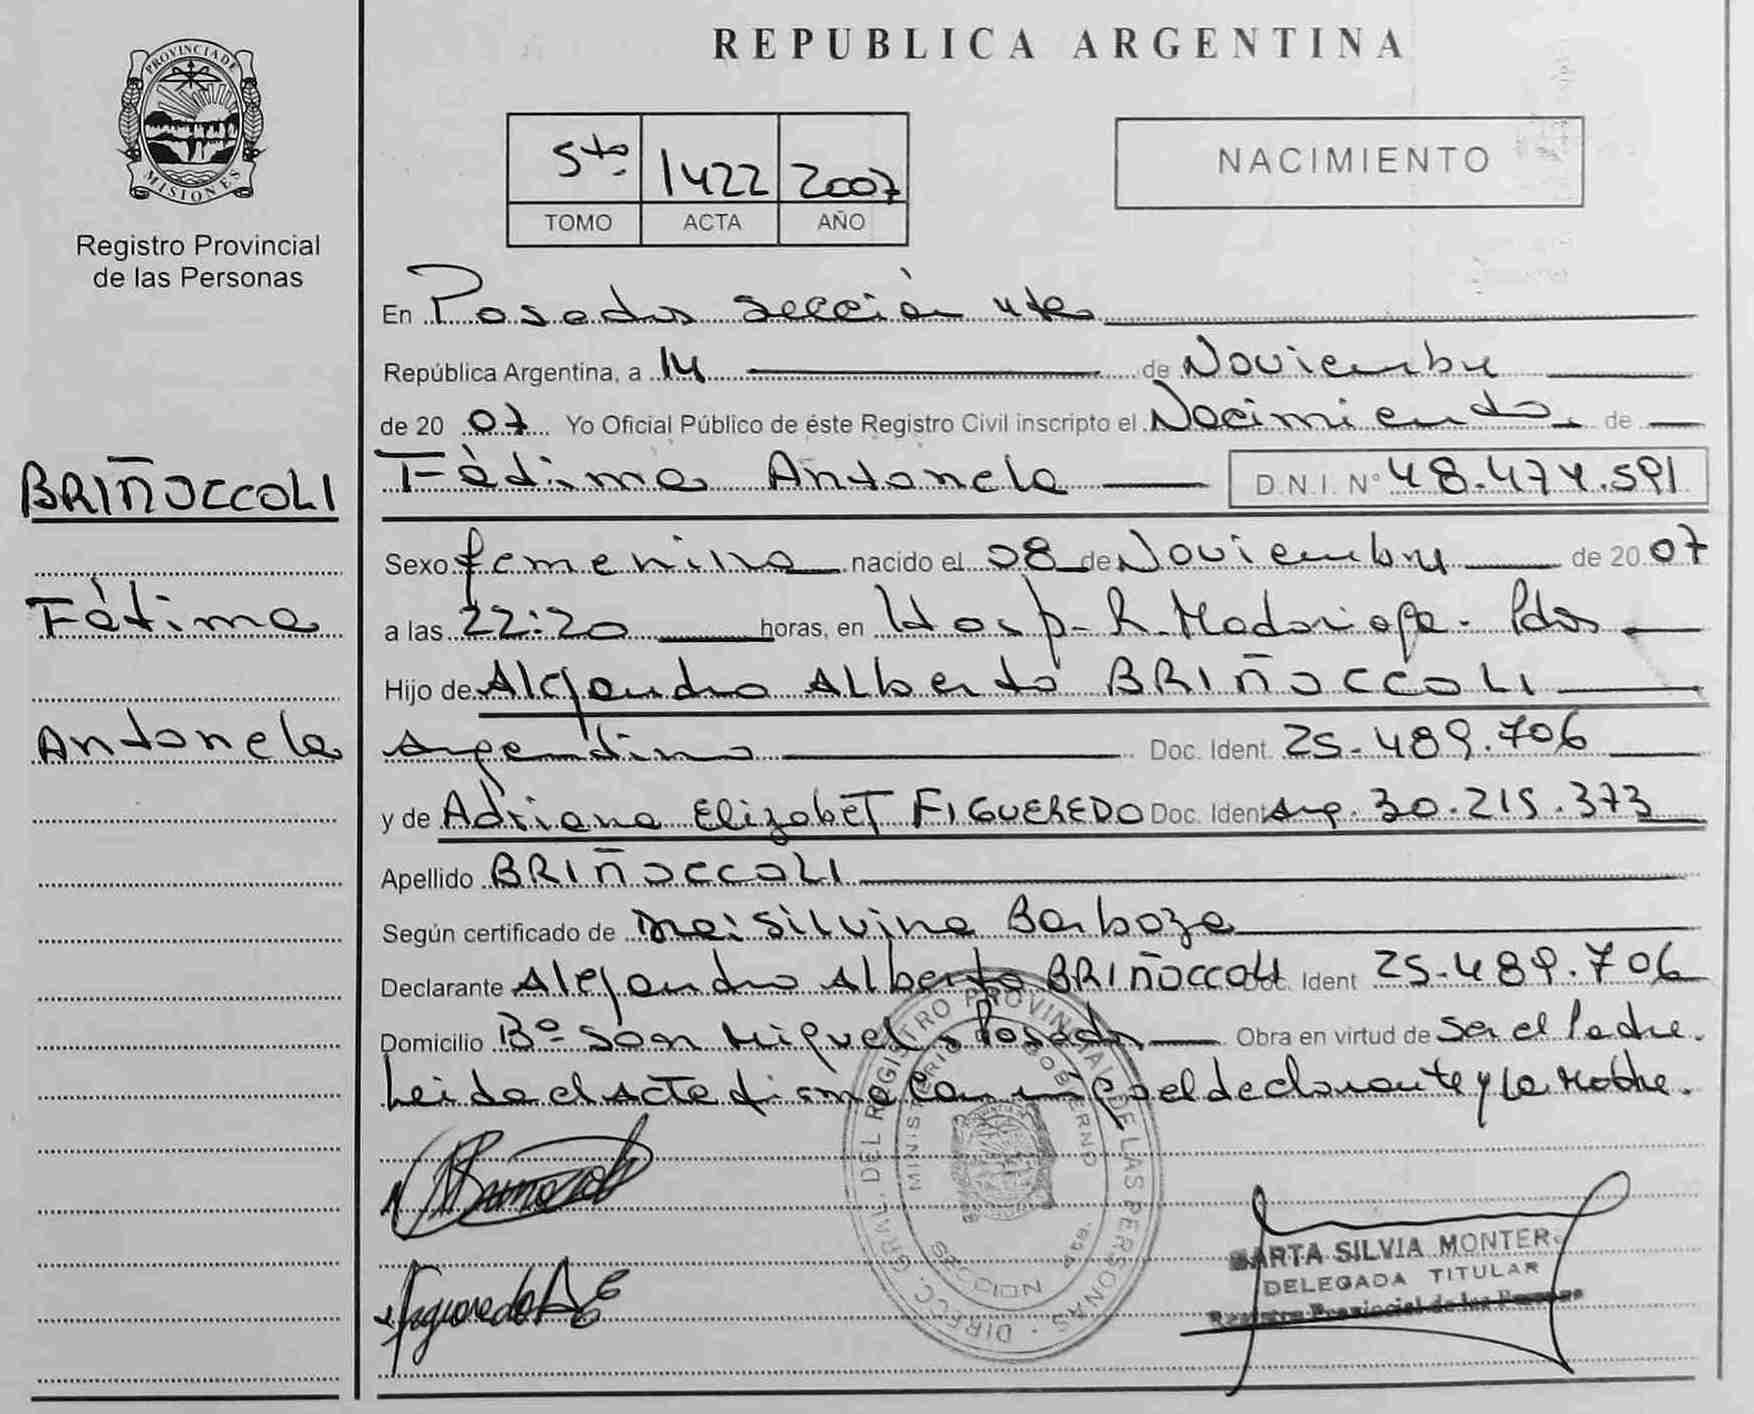 PROVINCIA DE
MISIONES
Registro Provincial
de las Personas
BRIÑOCCOLI
Fátima
Antonela
REPUBLICA ARGENTINA
5to. 1422 2007
TOMO ACTA AÑO
NACIMIENTO
En Posadas sección 4ta
República Argentina, a 14 de Noviembre
de 2007 Yo Oficial Público de éste Registro Civil inscripto el Nacimiento de
Fátima Antonela D.N.I. Nº 48.474.591
Sexo femenino nacido el 08 de Noviembre de 2007
a las 22:20 horas, en Hosp. R. Madariaga - Pdas
Hijo de Alejandro Alberto BRIÑOCCOLI
Argentino Doc. Ident. 25.489.706
y de Adriana Elizabet FIGUEREDO Doc. Ident Arg. 30.215.373
Apellido BRIÑOCCOLI
Según certificado de Silvina Barboza
Declarante Alejandro Alberto BRIÑOCCOLI Doc. Ident 25.489.706
Domicilio Bº San Miguel Posadas Obra en virtud de Ser el Padre.
Leida el Acta firma conmigo el declarante y la Madre.
Figueredo A E
DIRECC. GRAL. DEL REGISTRO PROVINCIAL DE LAS PERSONAS
MINISTERIO GOBIERNO
SECCION
MARTA SILVIA MONTER
DELEGADA TITULAR
Registro Provincial de las Personas